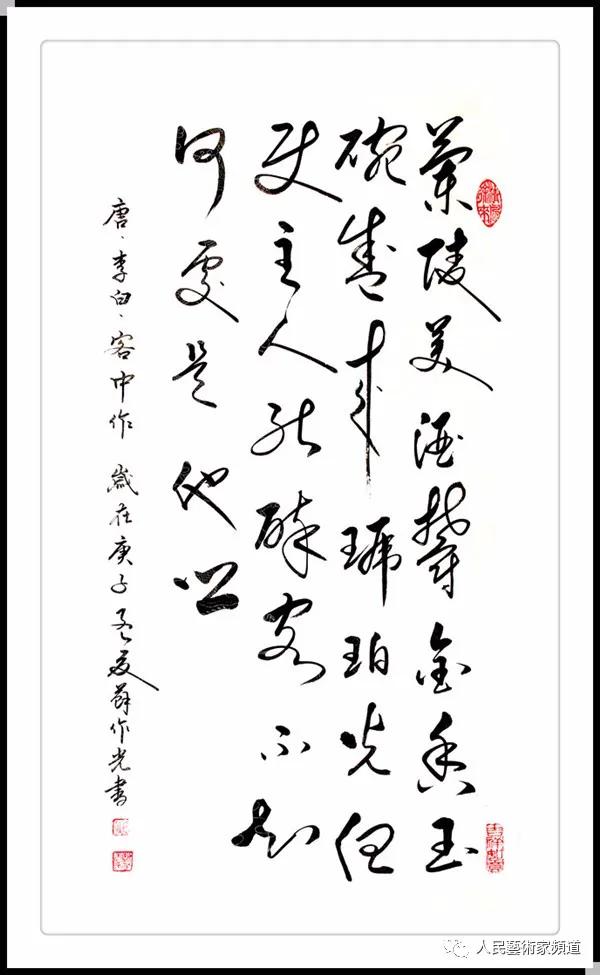 蘭陵美酒鬱金香玉
碗盛來琥珀光但
使主人能醉客不知
何處是他鄉
唐·李白·客中作 歲在庚子孟夏薛作光書
人民藝術家頻道